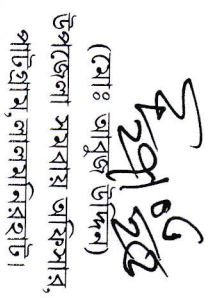 (মোঃ আবুজ উদ্দিন)
উপজেলা সমবায় অফিসার,
পাটগ্রাম,লালমনিরহাট।